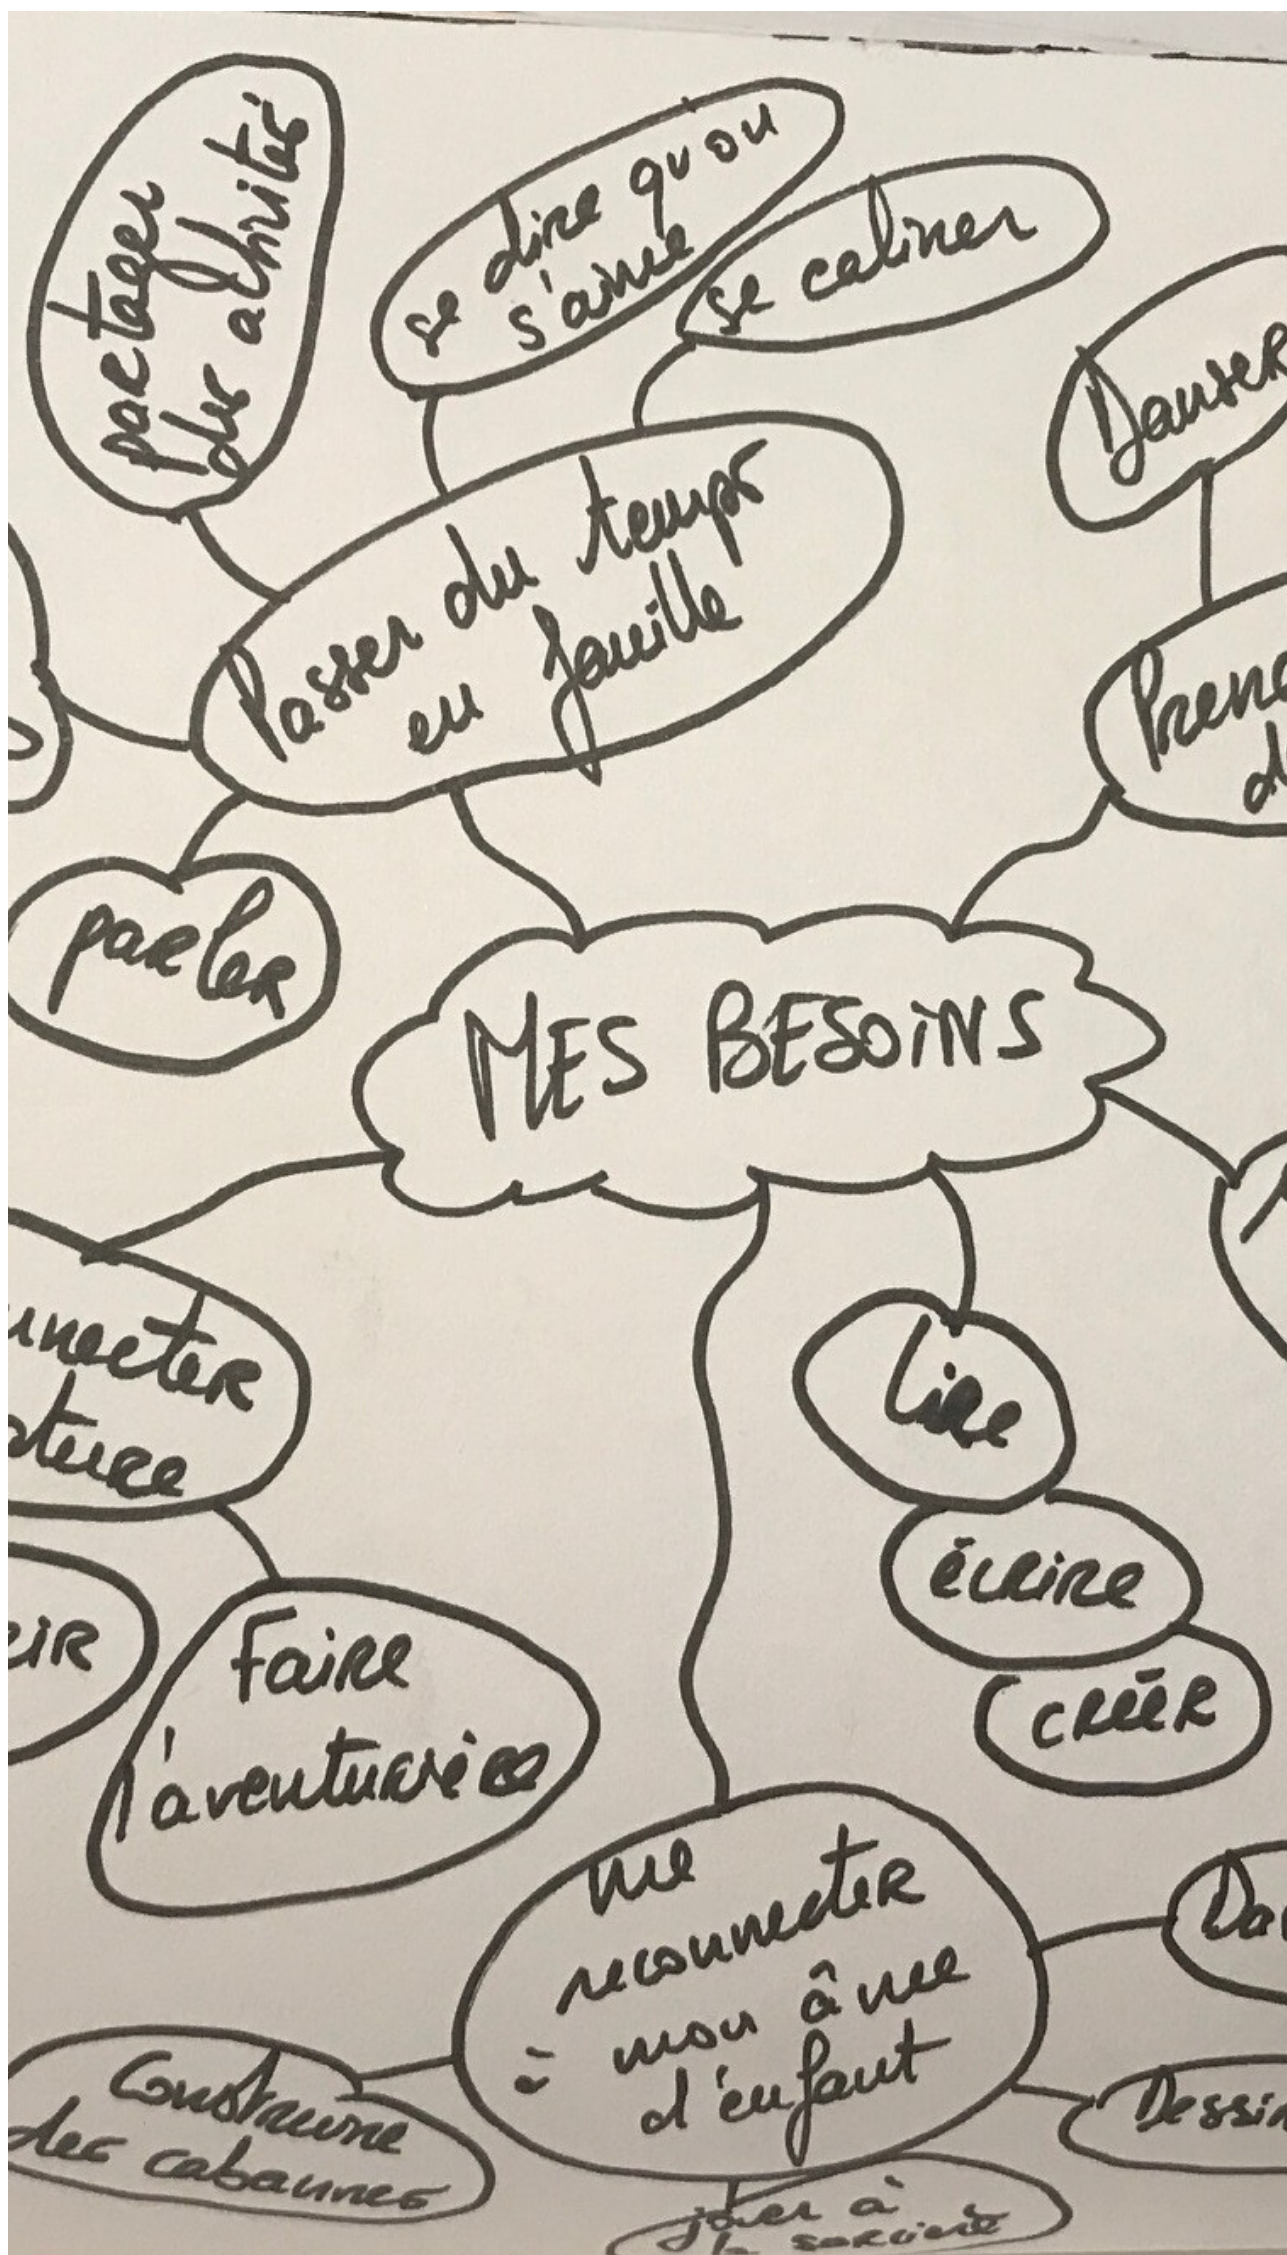 partager
des activités
se dire qu'on
s'aime
se caliner
Danser
Passer du temps
en famille
parler
MES BESOINS
Lire
écrire
créer
Faire
l'aventurière
me
reconnecter
à mon âme
d'enfant
Construire
des cabannes
jouer à
la sorcière